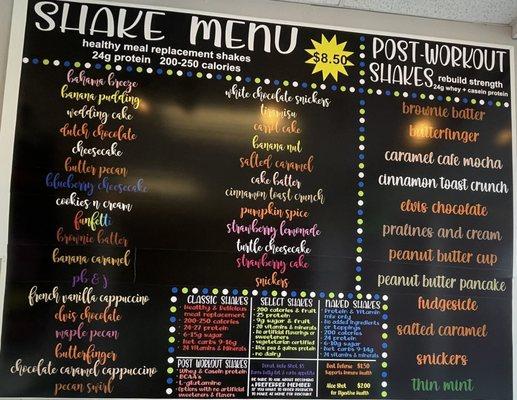 SHAKE MENU
$8.50
healthy meal replacement shakes
24g protein 200-250 calories
bahama breeze
banana pudding
wedding cake
dutch chocolate
cheesecake
butter pecan
blueberry cheesecake
cookies n cream
funfetti
brownie batter
banana caramel
pb & j
french vanilla cappuccino
elvis chocolate
maple pecan
butterfinger
chocolate caramel cappuccino
pecan swirl
white chocolate snickers
tiramisu
carrot cake
banana nut
salted caramel
cake batter
cinnamon toast crunch
pumpkin spice
strawberry lemonade
turtle cheesecake
strawberry cake
snickers
POST-WORKOUT
SHAKES rebuild strength
24g whey + casein protein
brownie batter
butterfinger
caramel cafe mocha
cinnamon toast crunch
elvis chocolate
pralines and cream
peanut butter cup
peanut butter pancake
fudgesicle
salted caramel
snickers
thin mint
CLASSIC SHAKES
Healthy & Delicious
meal replacement
200-250 calories
24-27 protein
6-15g sugar
Net carbs 9-16g
24 Vitamins & Minerals
SELECT SHAKES
200 calories & fruit
25 protein
9g sugar & fruit
20 vitamins & minerals
No artificial flavorings or
sweeteners
vegetarian certified
Rice pea & quinoa protein
no dairy
NAKED SHAKES
Protein & Vitamin
mix only
No added ingredients
or toppings
200 calories
24 protein
6-10g sugar
Net carbs 9-14g
24 vitamins & minerals
POST WORKOUT SHAKES
Whey & Casein protein
BCAA's
L-glutamine
Flavors with no artificial
sweeteners & flavors
BE SURE TO ASK ABOUT BECOMING
A REFERRED MEMBER IF
$1.50
Aloe Shot $2.00
for Digestive Health